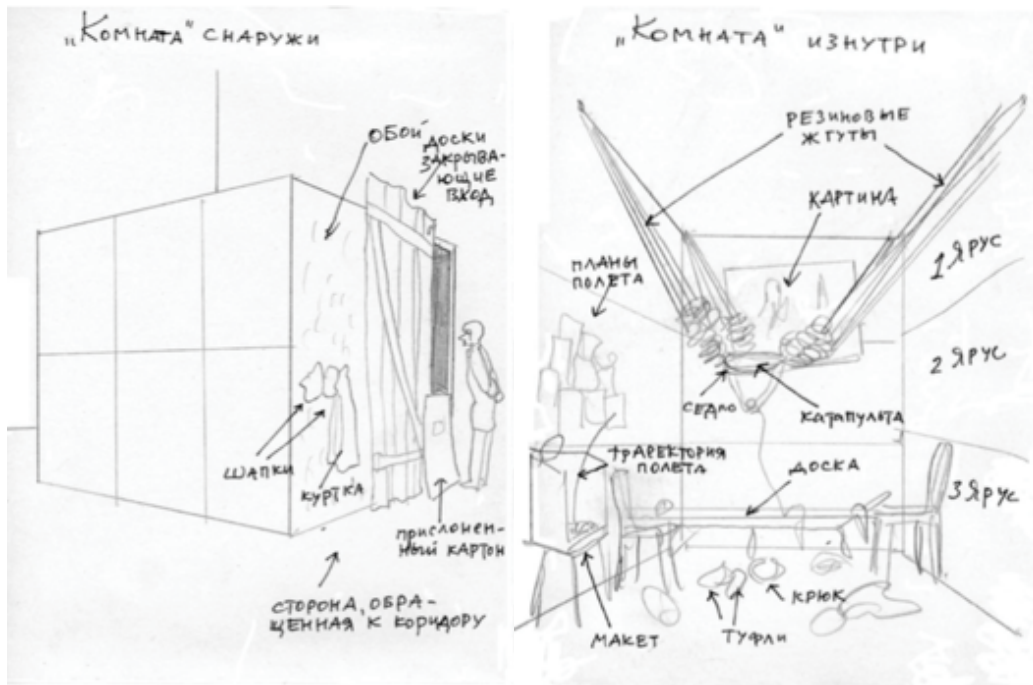 „Комната“ снаружи
обои
доски
закрыва-
ющие
вход
шапки
куртка
прислонен-
ный картон
сторона, обра-
щенная к коридору
„Комната“ изнутри
резиновые
жгуты
картина
планы
полета
1 ярус
2 ярус
седло
катапульта
траректория
полета
доска
3 ярус
крюк
макет
туфли